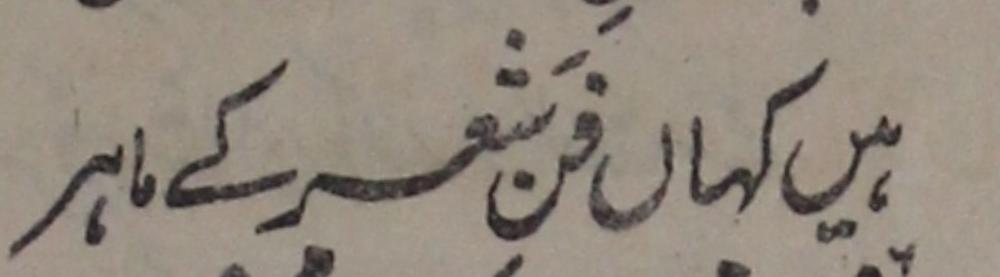 ہیں کہاں فن شعر کے ماہر